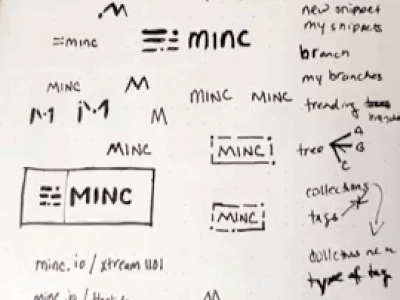 .M
new snippet
my snippets
minc
minc
branch
my branches
MINC
M
MINC
MINC
trending
M
M
M
MINC
MINC
tree
A
B
C
MINC
collections
tags
MINC
minc.io/xtream1101
type of tag
minc.io/
M